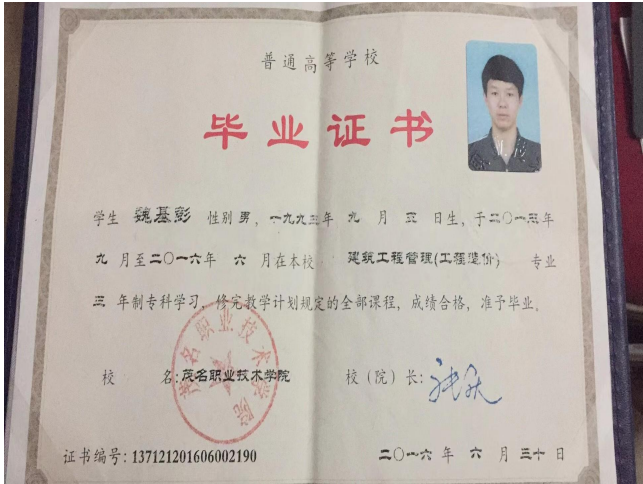 普通高等学校
毕业证书
学生 魏基彭 性别 男，一九九三年 九 月 三 日生，于二〇一三年
九 月至二〇一六年 六 月在本校 建筑工程管理(工程造价) 专业
三 年制专科学习，修完教学计划规定的全部课程，成绩合格，准予毕业。
校 名：茂名职业技术学院 校（院）长：
茂名职业技术学院
证书编号：137121201606002190 二〇一六年 六 月 三十 日